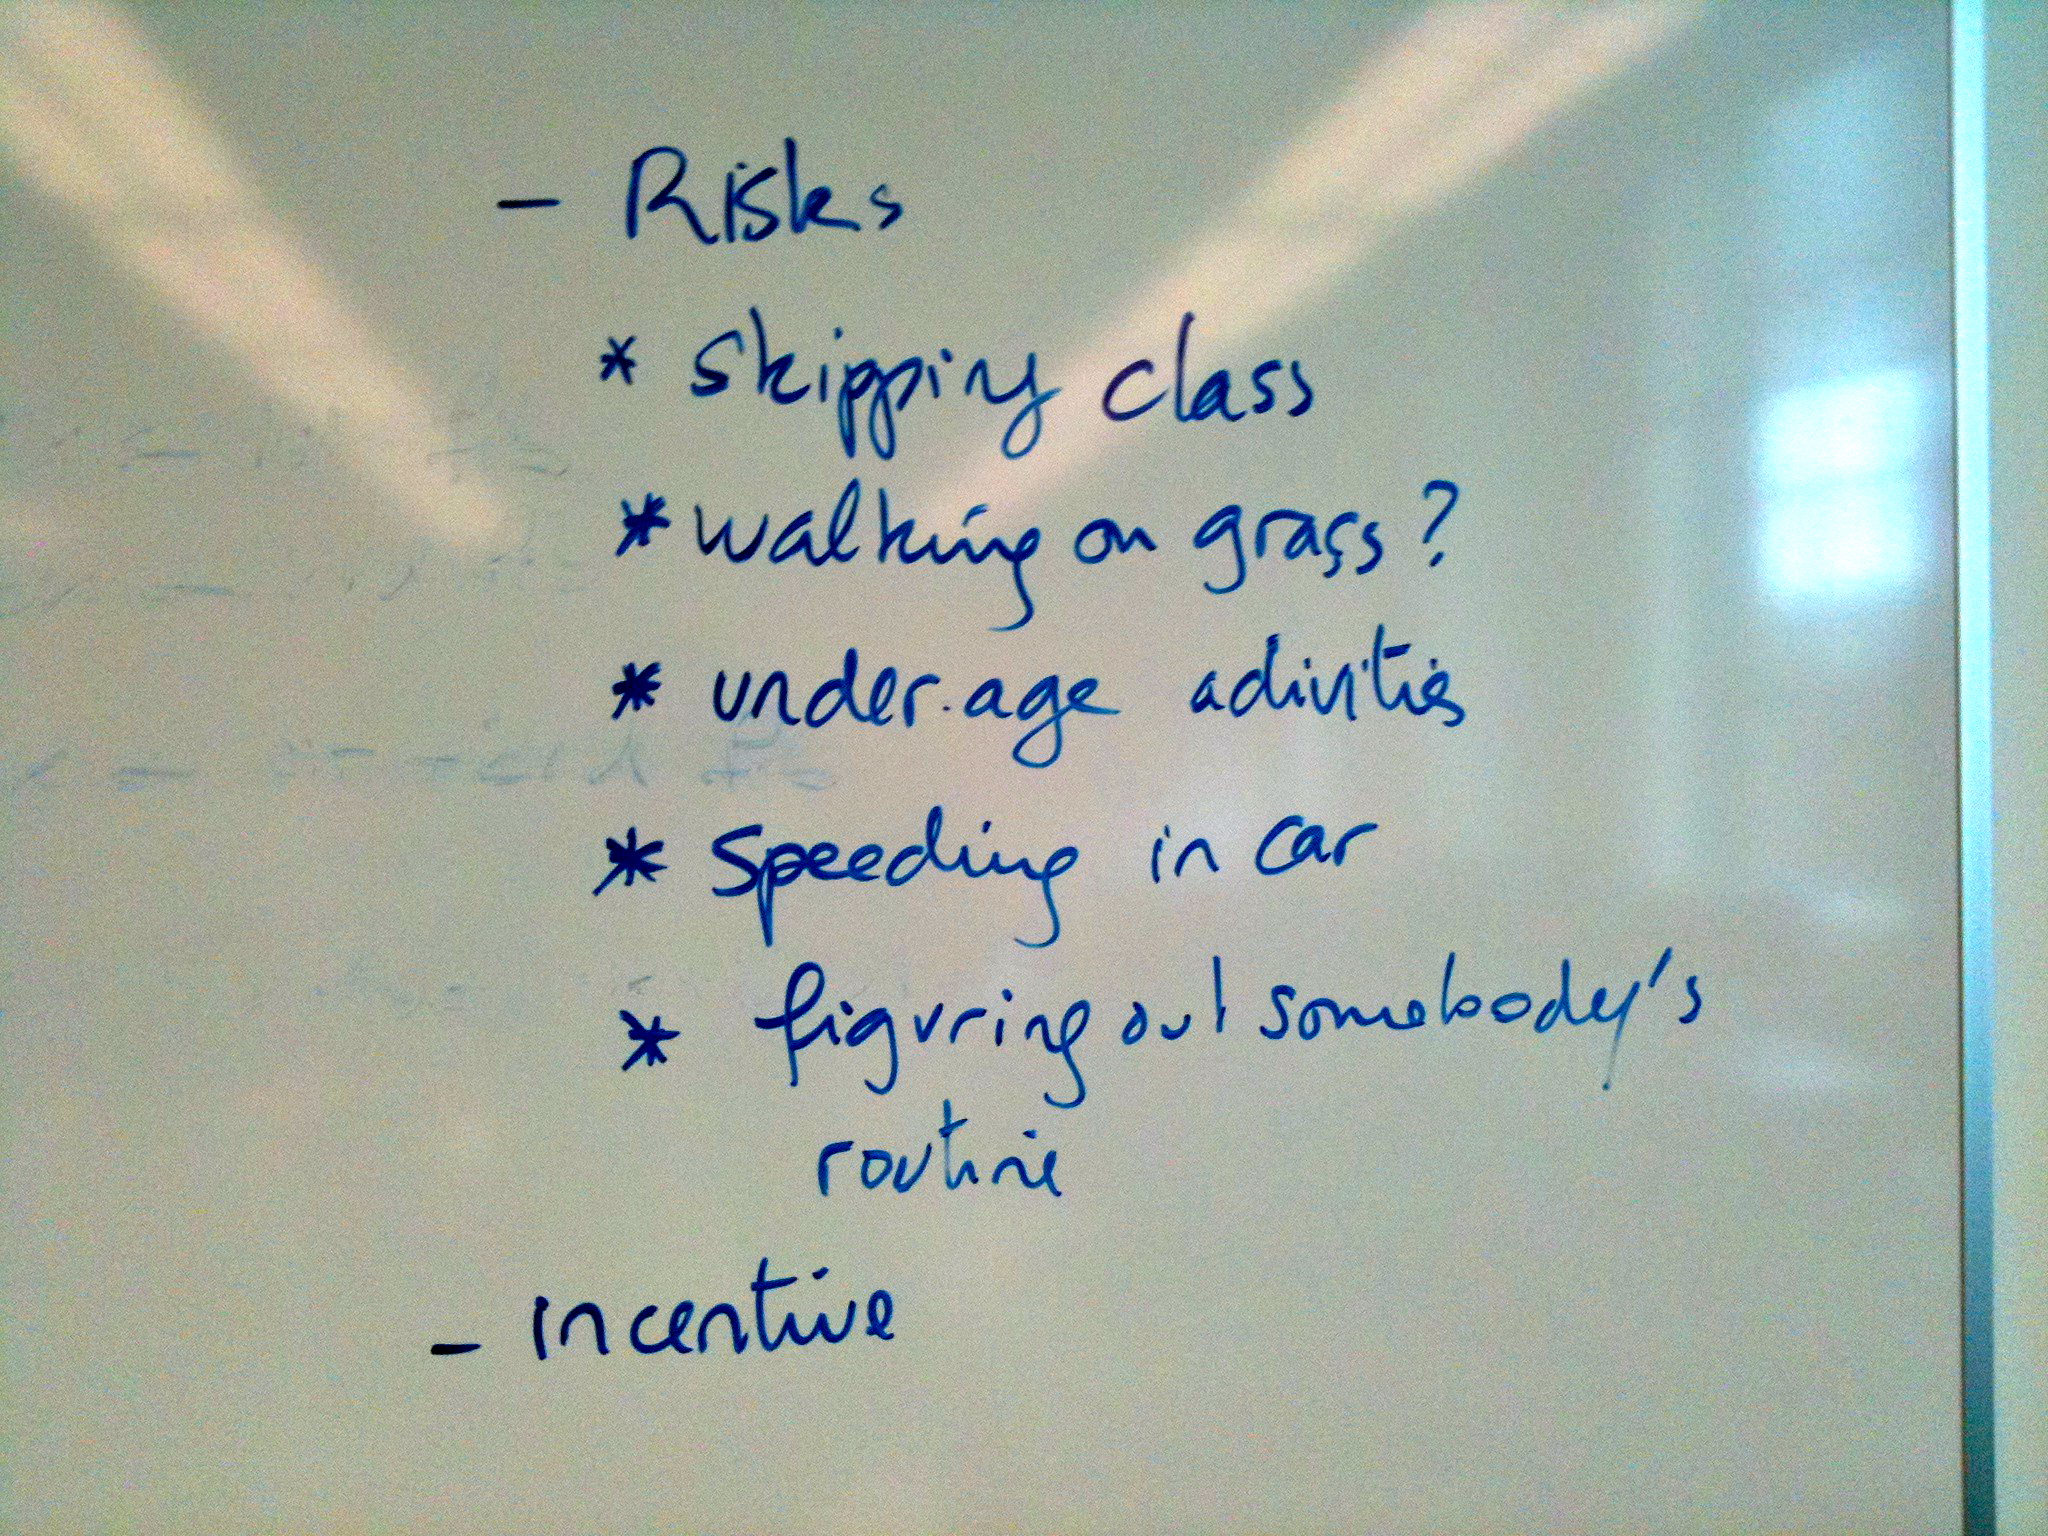 - Risks
* skipping class
* walking on grass?
* under.age activities
* speeding in car
* figuring out somebody's
routine
- incentive